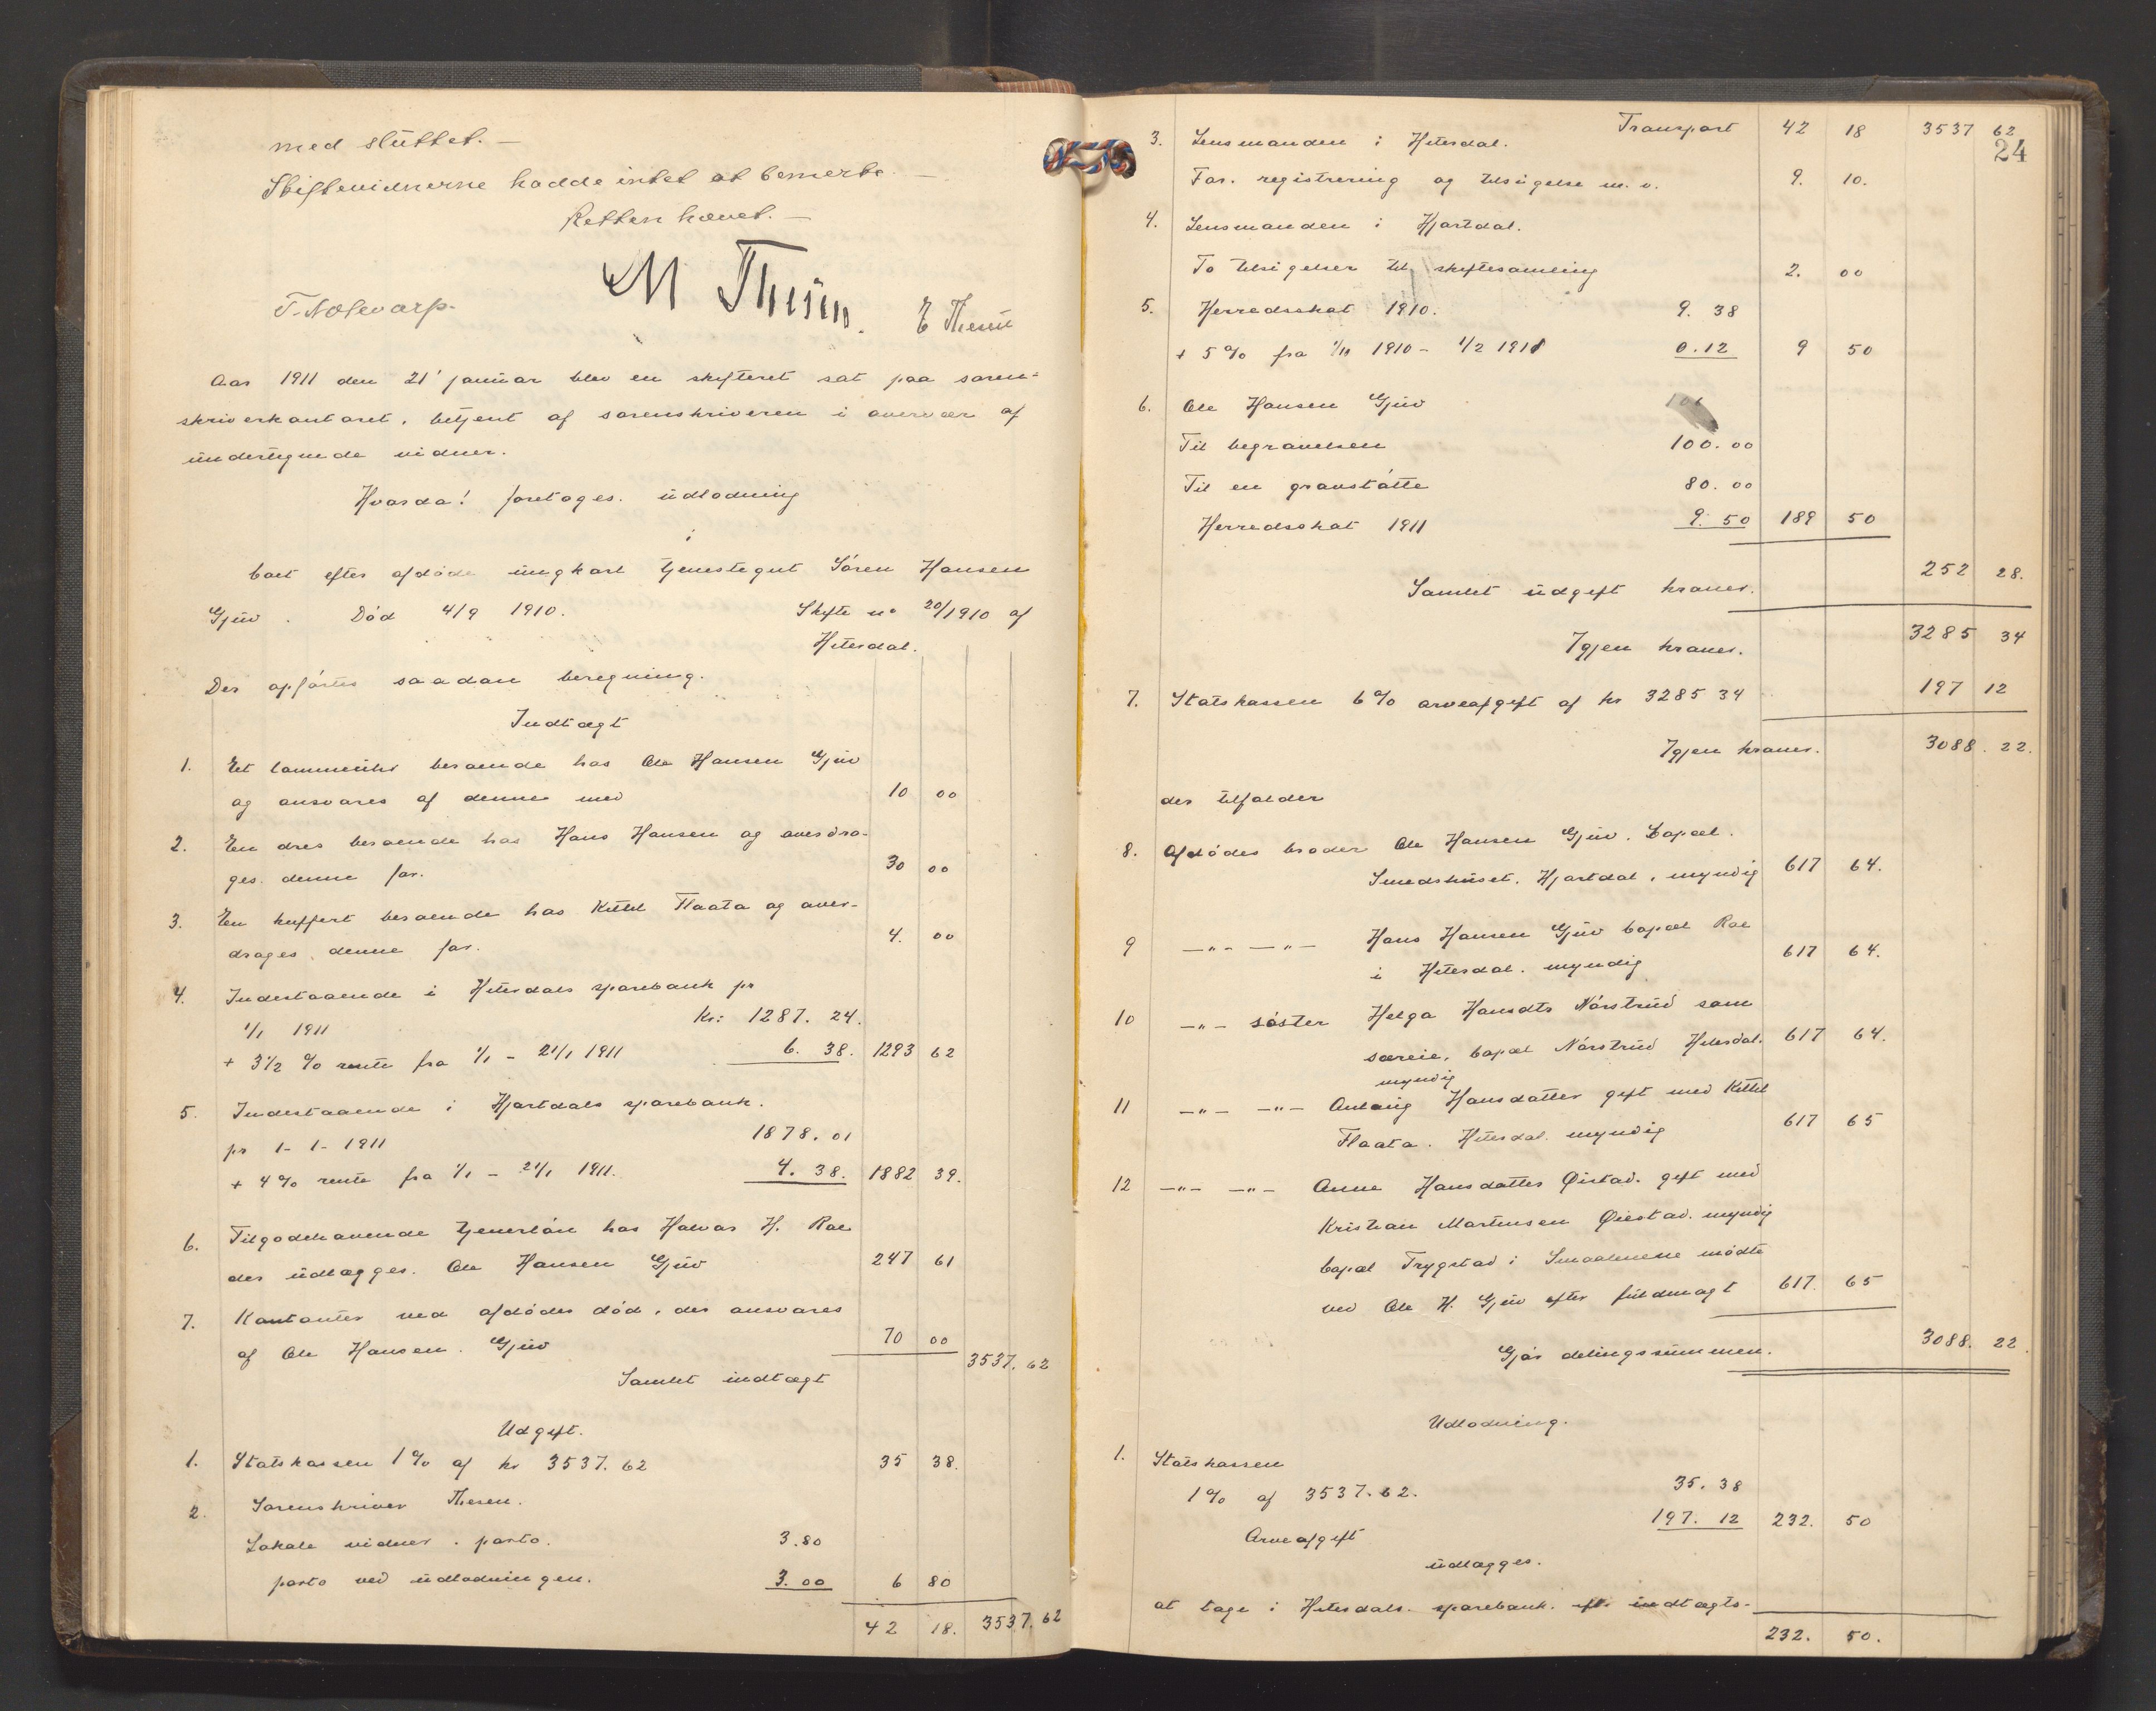 med sluttet. —
Skiftevidnerne hadde intet at bemerke. —
Retten hævet. —
M Thesen.
T. Nolevarp. E Thesen
Aar 1911 den 21' januar blev en skifteret sat paa soren-
skriverkontoret, betjent af sorenskriveren i overvær af
undertegnede vidner.
Hvorda! foretoges. udlodning
i
boet efter afdøde ungkarl tjenestegut Søren Hansen
Gjuv. Død 4/9 1910. Skifte no 20/1910 af
Hitterdal.
Der opførtes saadan beregning.
Indtægt
1. Et lommeuhr beroende hos Ole Hansen Gjuv
og ansvares af denne med 10 00
2. En dres beroende hos Hans Hansen og overdra-
ges. denne for. 30 00
3. En kuffert beroende hos Kittil Flaata og over-
drages. denne for. 4. 00
4. Indestaaende i Hiterdals sparebank pr
1/1 1911 Kr: 1287. 24.
+ 3 1/2 % rente fra 1/1 - 21/1 1911 6. 38. 1293 62
5. Indestaaende i Hjartdals sparebank.
pr 1-1-1911 1878. 01
+ 4 % rente fra 1/1 - 21/1 1911. 4. 38. 1882 39.
6. Tilgodehavende tjenerløn hos Halvor H. Roe
der udlægges. Ole Hansen Gjuv 247 61
7. Kontanter ved afdødes død, der ansvares
af Ole Hansen. Gjuv 70 00
Samlet indtægt 3537. 62
Udgift.
1. Statskassen 1 % af kr 3537. 62 35 38.
2. Sorenskriver Thesen.
Lokale vidner. porto. 3.80
porto ved udlodningen. 3. 00 6 80
42 18. 3537. 62
24
Transport 42 18 3537 62
3. Lensmanden i Hiterdal.
For. registrering og tilsigelse m. v. 9. 10.
4. Lensmanden i Hjartdal.
To tilsigelser til skiftesamling 2. 00
5. Herredsskat 1910. 9. 38
+ 5 % fra 1/11 1910 - 1/2 1911 0. 12 9 50
6. Ole Hansen Gjuv
Til begravelsen 100. 00
Til en gravstøtte 80. 00
Herredsskat 1911 9. 50 189 50
Samlet udgift kroner. 252 28.
Igjen kroner. 3285 34
7. Statskassen 6 % arveafgift af kr 3285 34 197 12
Igjen kroner. 3088. 22.
der tilfalder
8. Afdødes broder Ole Hansen Gjuv. bopæl.
Smedshuset. Hjartdal, myndig 617 64.
9 —"— —"— Hans Hansen Gjuv bopæl Roe
i Hiterdal. myndig 617 64.
10 —"— søster Helga Hansdtr Nørstrud som
særeie, bopæl Nørstrud Hiterdal. 617 64.
myndig
11 —"— —"— Anlaug Hansdatter gift med Kittil
Flaata. Hiterdal. myndig 617 65
12 —"— —"— Anne Hansdatter Øistad. gift med
Kristian Martinsen Øiestad. myndig
bopæl Trygstad i Smaalenene mødte
ved Ole H. Gjuv efter fuldmagt 617. 65
Gjør delingssummen. 3088. 22
Udlodning.
1. Statskassen
1 % af 3537. 62. 35. 38
Arveafgift 197. 12 232. 50
udlægges.
at tage i Hiterdals. sparebank. efter indtægts-
232. 50.